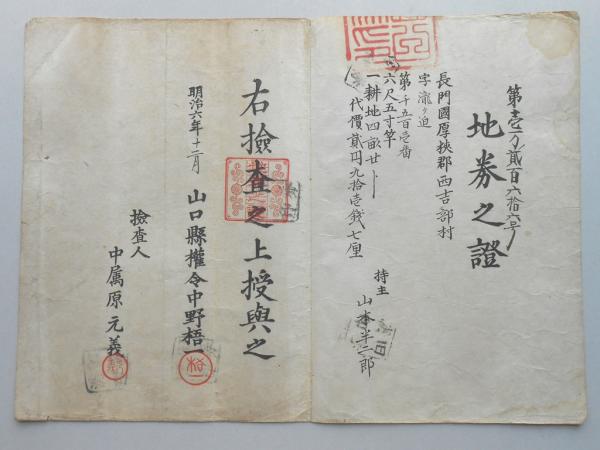 第壱万貳百六拾六号
地券之證
長門國厚狹郡西吉部村
字瀧ヶ迫
第千五百壱番
六尺五寸竿
一耕地四畝廿卜
代價貳円九拾壱錢七厘
持主
山本半二郎
右撿査之上授與之
明治六年十二月
山口縣權令中野梧一
撿査人
中属原元義